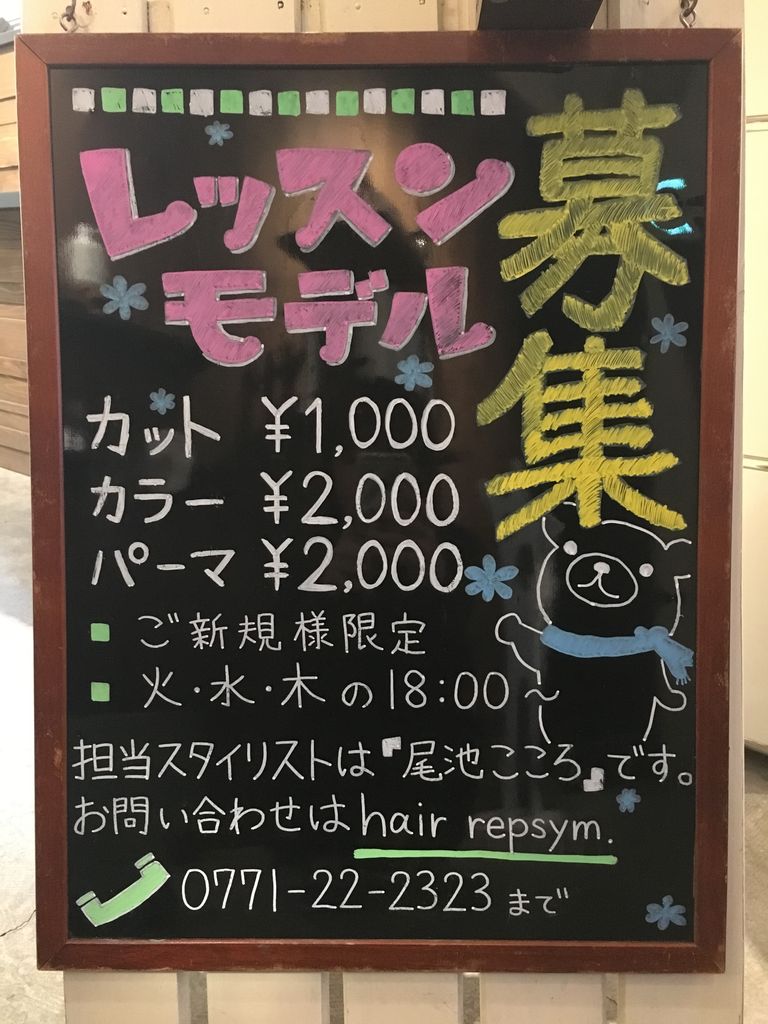 レッスン
モデル
募集
カット ¥1,000
カラー ¥2,000
パーマ ¥2,000
ご新規様限定
火・水・木の18:00～
担当スタイリストは『尾池こころ』です。
お問い合わせはhair repsym.
0771-22-2323 まで